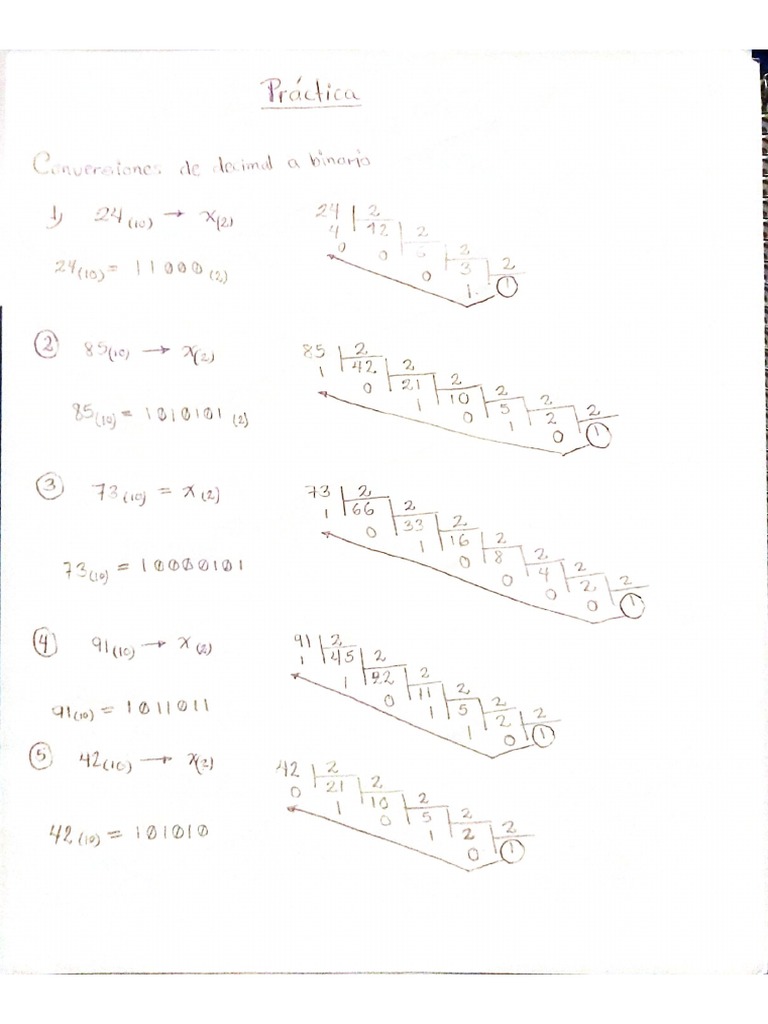 Práctica
Conversiones de decimal a binario
1) 24(10) → x(2)
24 2
4 12 2
0 0 6 2
0 3 2
1 1
24(10) = 11000(2)
2 85(10) → x(2)
85 2
1 42 2
0 21 2
1 10 2
0 5 2
1 2 2
0 1
85(10) = 1010101(2)
3 73(10) = x(2)
73 2
1 66 2
0 33 2
1 16 2
0 8 2
0 4 2
0 2 2
0 1
73(10) = 10000101
4 91(10) → x(2)
91 2
1 45 2
1 22 2
0 11 2
1 5 2
1 2 2
0 1
91(10) = 1011011
5 42(10) → x(2)
42 2
0 21 2
1 10 2
0 5 2
1 2 2
0 1
42(10) = 101010